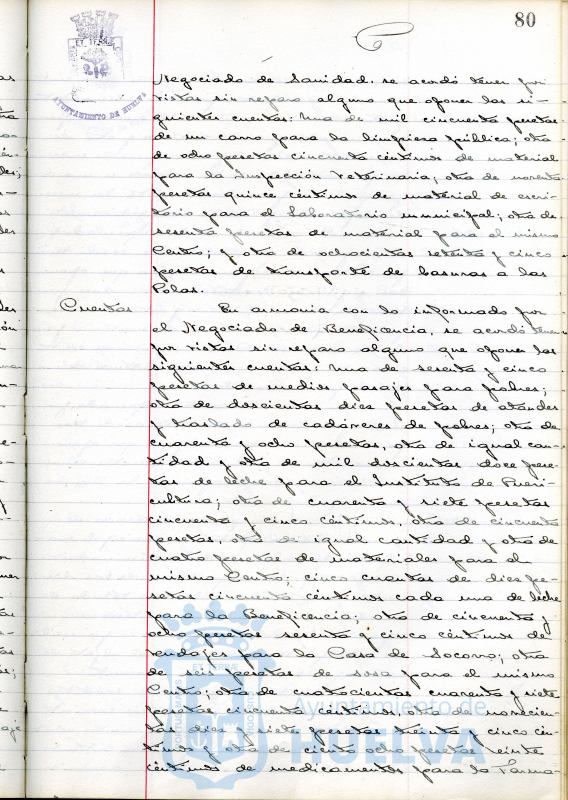 80
AYUNTAMIENTO DE HUELVA
Negociado de Sanidad. se acordó tener por
vistas sin reparo alguno que oponer las si-
guientes cuentas: Una de mil cincuenta pesetas
de un carro para la limpieza pública; otra
de ocho pesetas cincuenta céntimos de material
para la Inspección Veterinaria; otra de noventa
pesetas quince céntimos de material de escri-
torio para el Laboratorio municipal; otra de
sesenta pesetas de material para el mismo
Centro; y otra de ochocientas setenta y cinco
pesetas de transporte de basuras a las
Polas.
Cuentas
En armonía con lo informado por
el Negociado de Beneficencia, se acordó tener
por vistas sin reparo alguno que oponer las
siguientes cuentas: Una de sesenta y cinco
pesetas de medios pasajes para pobres;
otra de doscientas diez pesetas de ataudes
y traslado de cadáveres de pobres; otra de
cuarenta y ocho pesetas, otra de igual can-
tidad y otra de mil doscientas doce pese-
tas de leche para el Instituto de Pueri-
cultura; otra de cuarenta y siete pesetas
cincuenta y cinco céntimos, otra de cincuenta
pesetas, otra de igual cantidad y otra de
cuatro pesetas de materiales para el
mismo Centro; cinco cuentas de diez pe-
setas cincuenta céntimos cada una de leche
para la Beneficencia; otra de cincuenta y
ocho pesetas sesenta y cinco céntimos de
vendajes para la Casa de Socorro; otra
de seis pesetas de sosa para el mismo
Cento; otra de cuatrocientas cuarenta y siete
pesetas cincuenta céntimos, otra de novecien-
tas diez y siete pesetas treinta y cinco cén-
timos y otra de ciento ocho pesetas veinte
céntimos de medicamentos para la Farma-
Ayuntamiento de
HUELVA